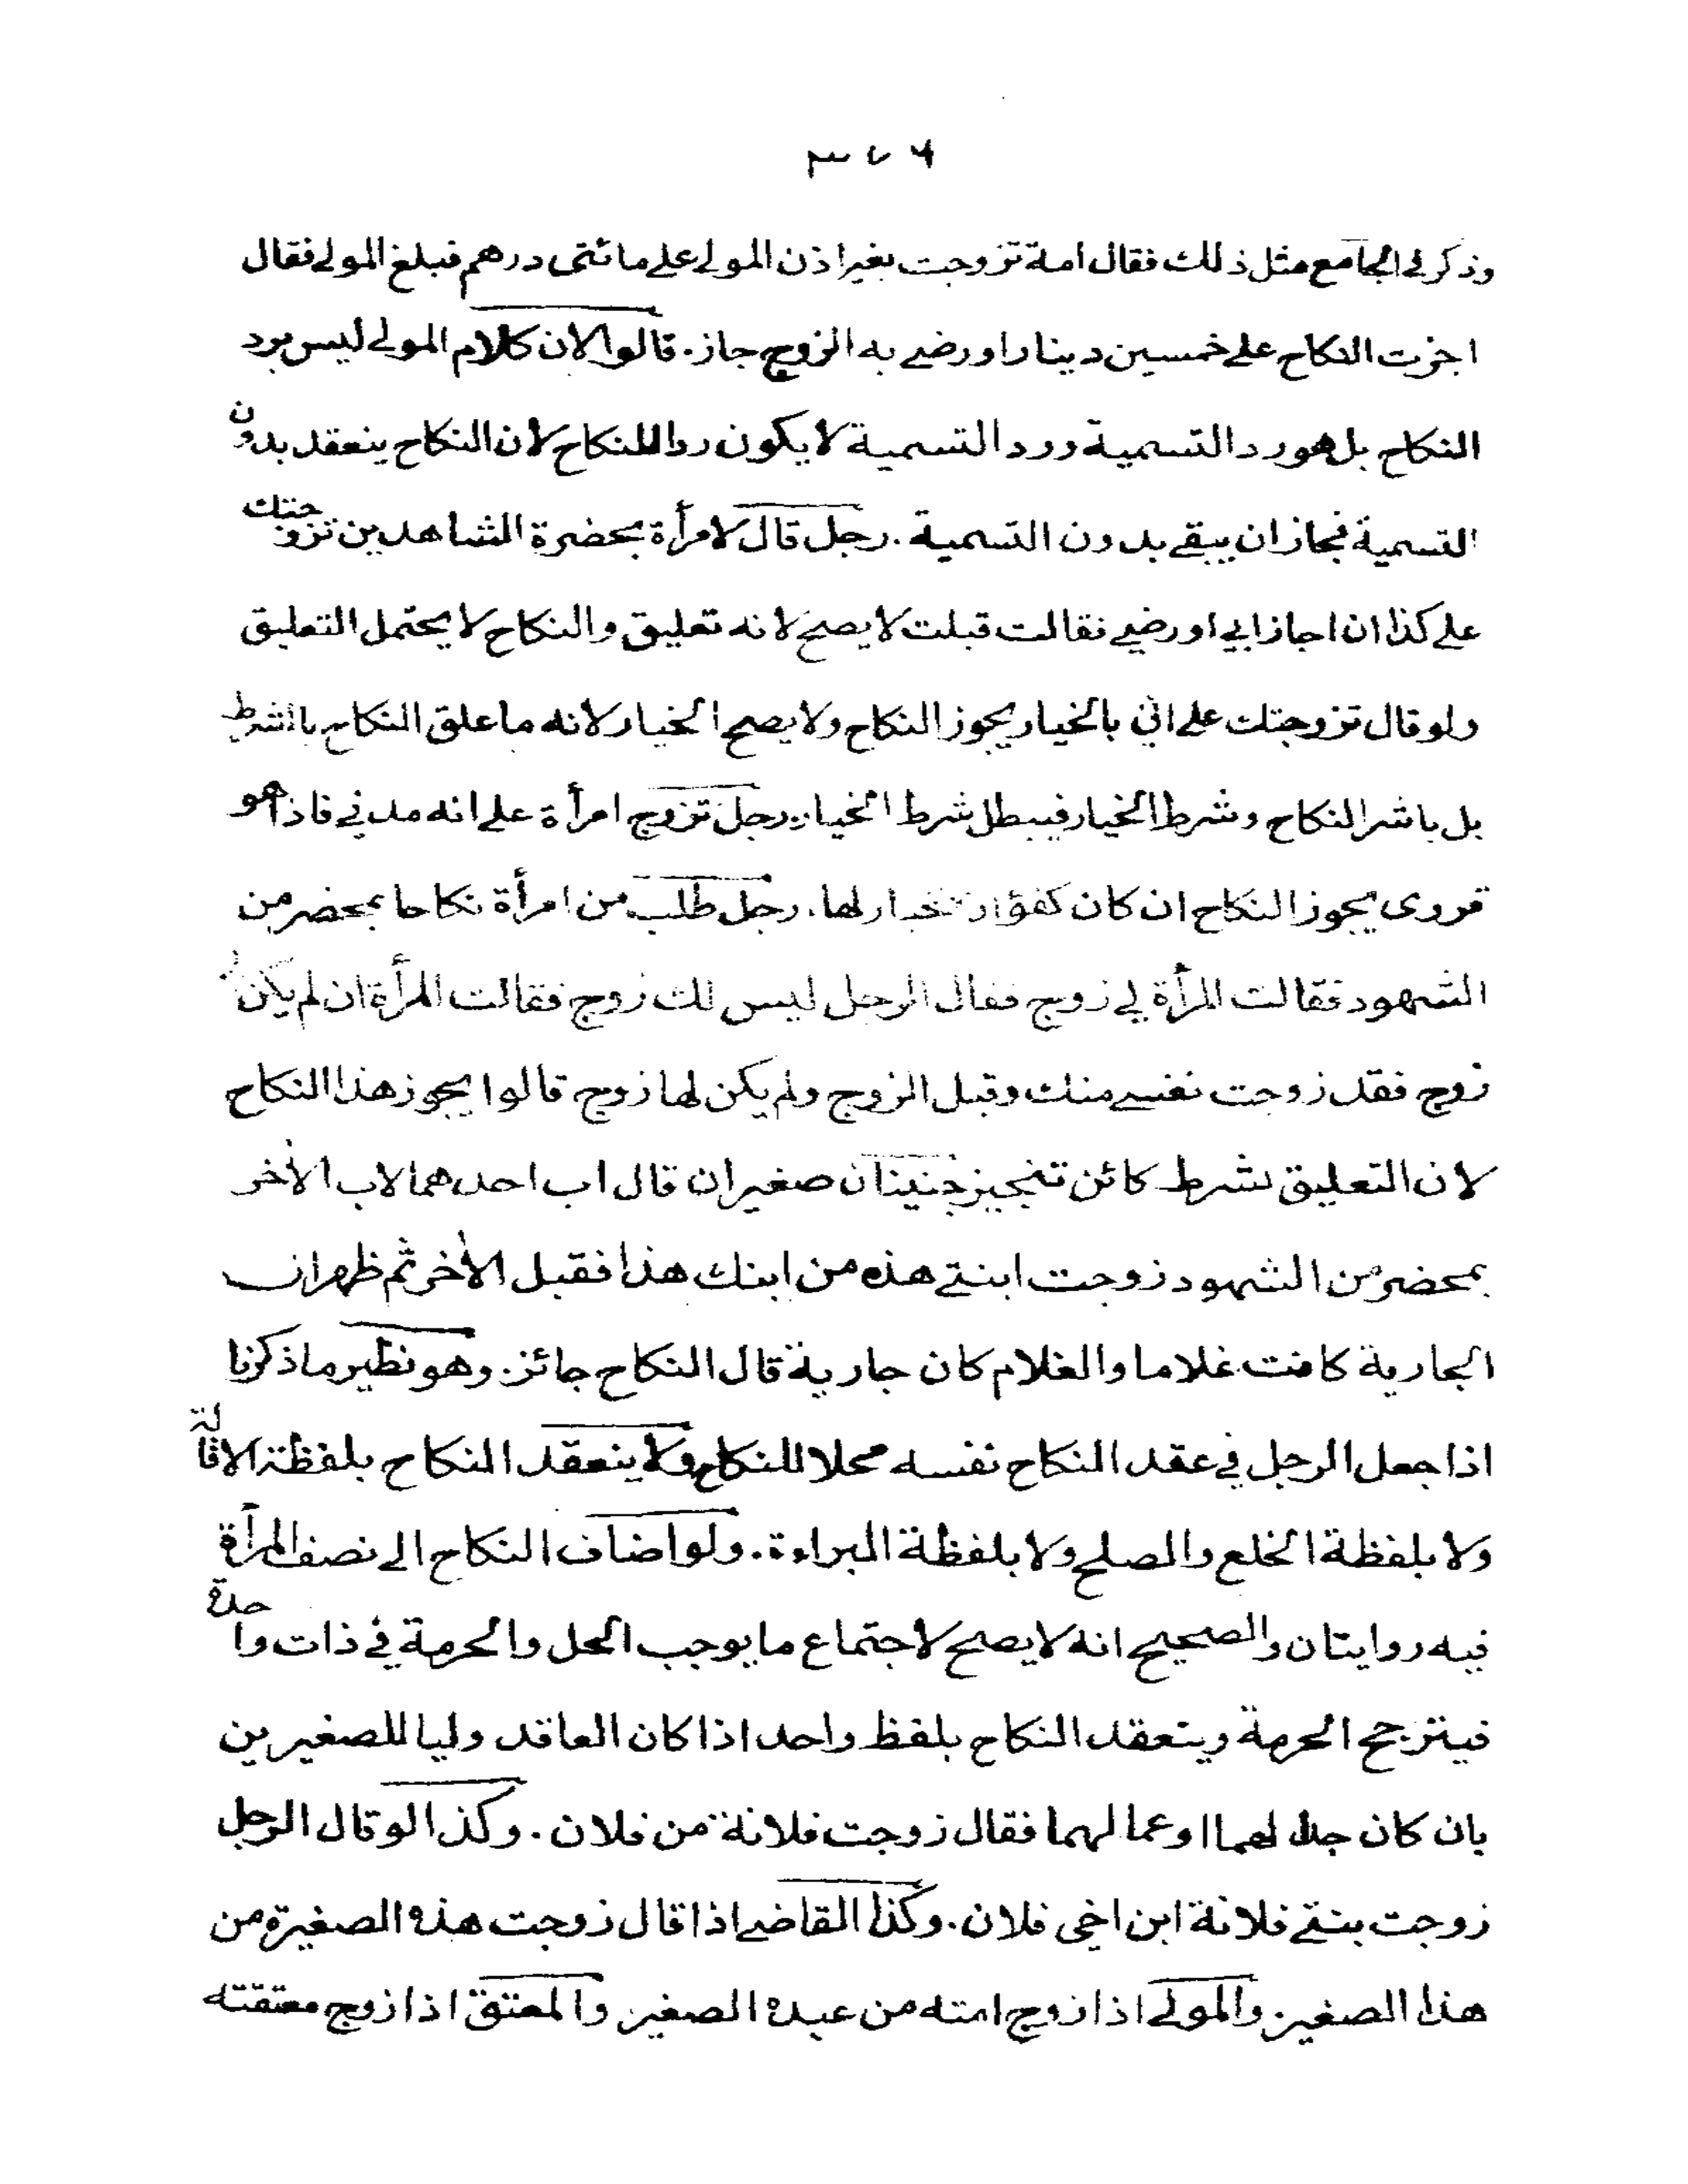 ٣٧٦
وذكر في الجامع مثل ذلك فقال امة تزوجت بغير اذن المولى على مائتى درهم فبلغ المولى فقال
اجزت النكاح على خمسين دينارا ورضى به الزوج جاز. قالوا لان كلام المولى ليس برد
النكاح بل هو رد التسمية ورد التسمية لا يكون ردا للنكاح لان النكاح ينعقد بدون
التسمية فجاز ان يبقى بدون التسمية. رجل قال لامرأة بحضرة الشاهدين تزوجتك
على كذا ان اجاز ابي اورضى فقالت قبلت لا يصح لانه تعليق والنكاح لا يحتمل التعليق
ولو قال تزوجتك على اني بالخيار يجوز النكاح ولا يصح الخيار لانه ما علق النكاح بالشرط
بل باشر النكاح وشرط الخيار فيبطل شرط الخيار. رجل تزوج امرأة على انه مدني فاذا هو
قروى يجوز النكاح ان كان كفؤا ر خيار لها. رجل طلب من امرأة نكاحا بمحضر من
الشهود فقالت المرأة لي زوج فقال الرجل ليس لك زوج فقالت المرأة ان لم يكن لي
زوج فقد زوجت نفسي منك وقبل الزوج ولم يكن لها زوج قالوا يجوز هذا النكاح
لان التعليق بشرط كائن تنجيز صغيران قال اب احدهما لاب الأخر
بمحضر من الشهود زوجت ابنتي هذه من ابنك هذا فقبل الأخر ثم ظهر ان
الجارية كانت غلاما والغلام كان جارية قال النكاح جائز. وهو نظير ما ذكرنا
اذا جعل الرجل في عقد النكاح نفسه محلا للنكاح ولا ينعقد النكاح بلفظة الاقالة
ولا بلفظة الخلع والصلح ولا بلفظة البراءة. ولو اضاف النكاح الى نصف المرأة
فيه روايتان والصحيح انه لا يصح لاجتماع ما يوجب الحل والحرمة في ذات واحدة
فيترجح الحرمة وينعقد النكاح بلفظ واحد اذا كان العاقد وليا للصغيرين
بان كان جدا لهما اوعما لهما فقال زوجت فلانة من فلان. وكذا لو قال الرجل
زوجت بنتي فلانة ابن اخى فلان. وكذا القاضي اذا قال زوجت هذه الصغيرة من
هذا الصغير. والمولى اذا زوج امته من عبده الصغير والمعتق اذا زوج معتقته